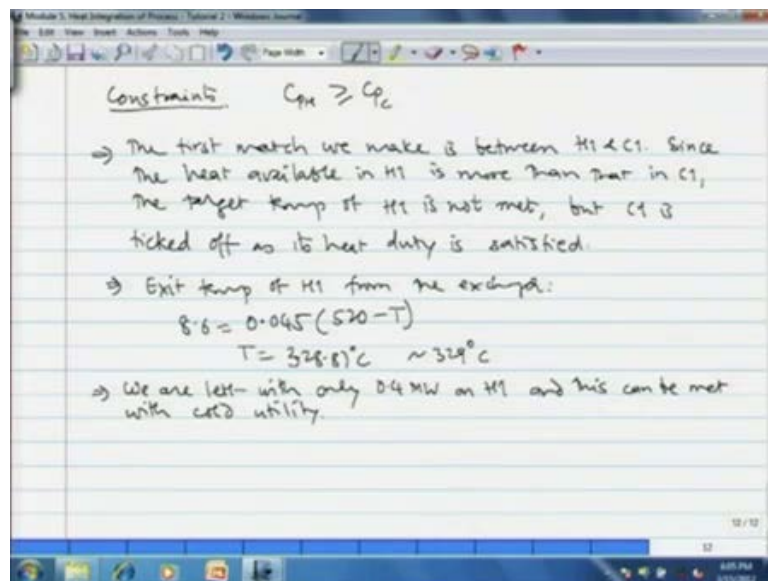 Module 5. Heat Integration of Process - Tutorial 2 - Windows Journal
File Edit View Insert Actions Tools Help
Page Width
Constraints CpH ≥ Cpc
⇒ The first match we make is between H1 & C1. Since
the heat available in H1 is more than that in C1,
the target temp of H1 is not met, but C1 is
ticked off as its heat duty is satisfied.
⇒ Exit temp of H1 from the
8.6 = 0.045 (520 - T)
T = 328.8)°C ~ 329°C
⇒ We are left with only 0.4 MW on H1 and this can be met
with cold utility.
12/12
12
6:05 PM